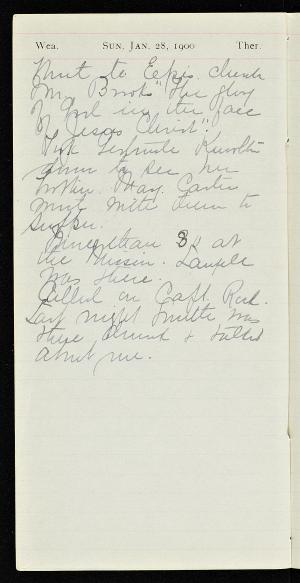 Wea. SUN. JAN. 28, 1900 Ther.
Went to Epis. church
Mr. Brooks "The glory
of God in the face
of Jesus Christ".
Took Gertrude
down to see her
mother. May Carter
went with them to
supper.
More than 84 at
the Mission.
was there.
Called on Capt. Reed.
Last night Smith was
there, & talked
about me.